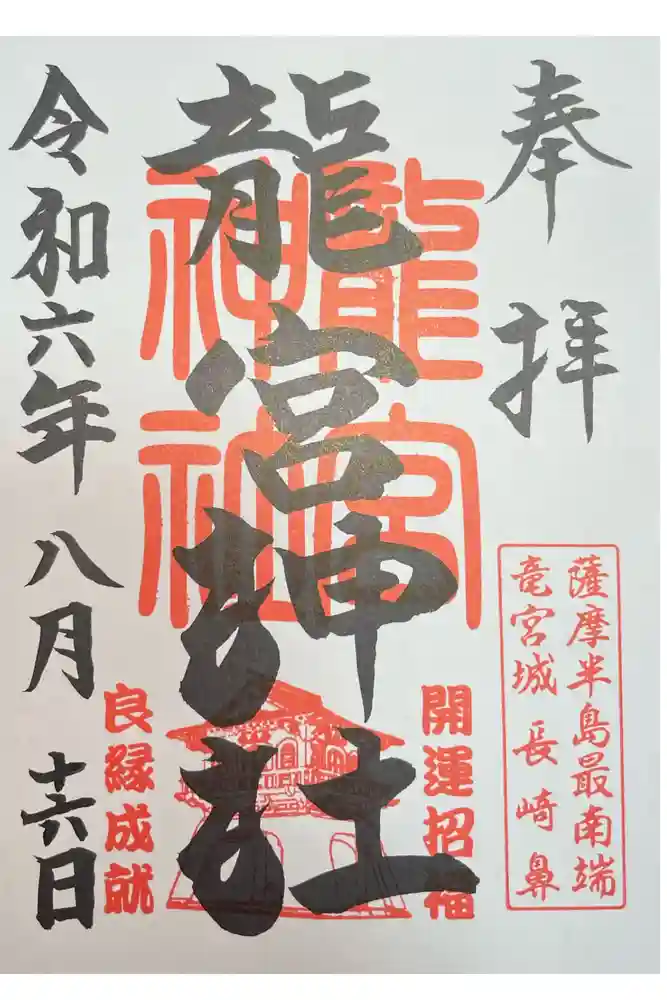 奉拝
薩摩半島最南端
竜宮城 長崎鼻
龍宮神社
龍宮
神社
開運招福
良縁成就
令和六年 八月 十六日